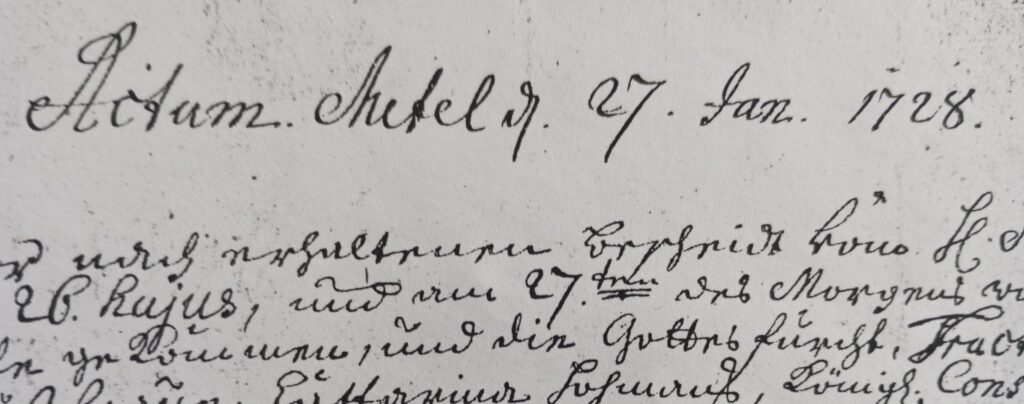 Actum. Metel d. 27. Jan. 1728.
nach erhaltenen bescheidt von H.
26. hujus, und am 27.ten des Morgens
gekommen, und die Gottesfurcht,
Catharina Hohmans, Königl. Cons